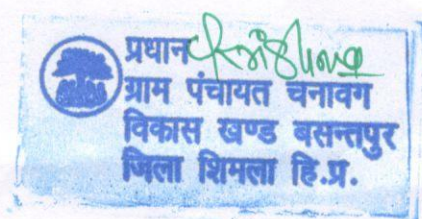 प्रधान
ग्राम पंचायत चनावग
विकास खण्ड बसन्तपुर
जिला शिमला हि.प्र.